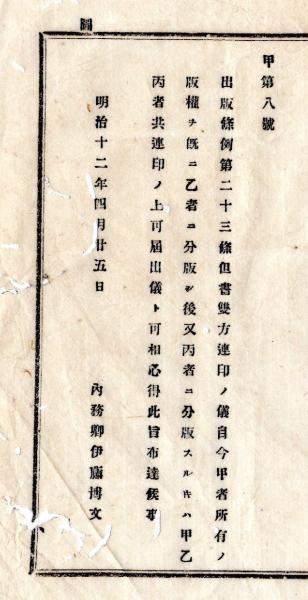 甲第八號
出版條例第二十三條但書雙方連印ノ儀自今甲者所有ノ
版權ヲ既ニ乙者ニ分版シ後又丙者ニ分版スルキハ甲乙
丙者共連印ノ上可届出儀ト可相心得此旨布達候事
明治十二年四月廿五日
內務卿伊藤博文